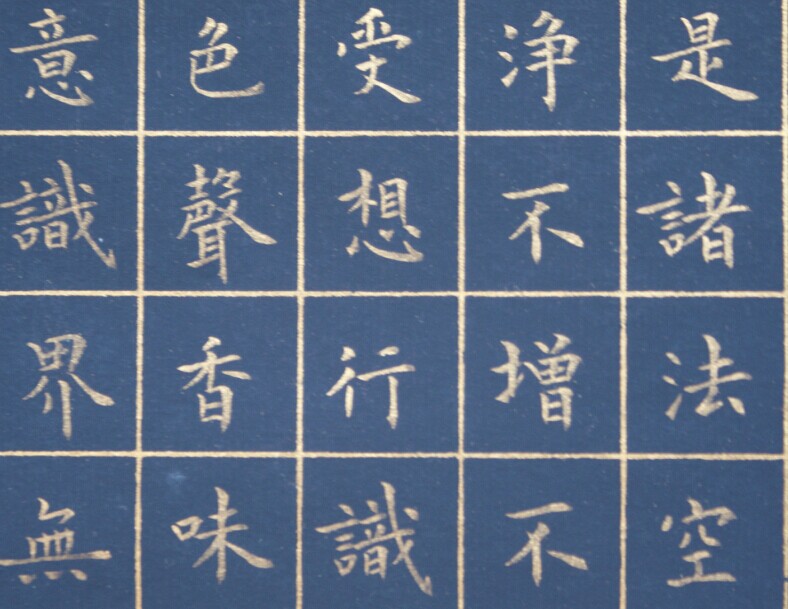 是諸法空
浄不増不
受想行識
色聲香味
意識界無